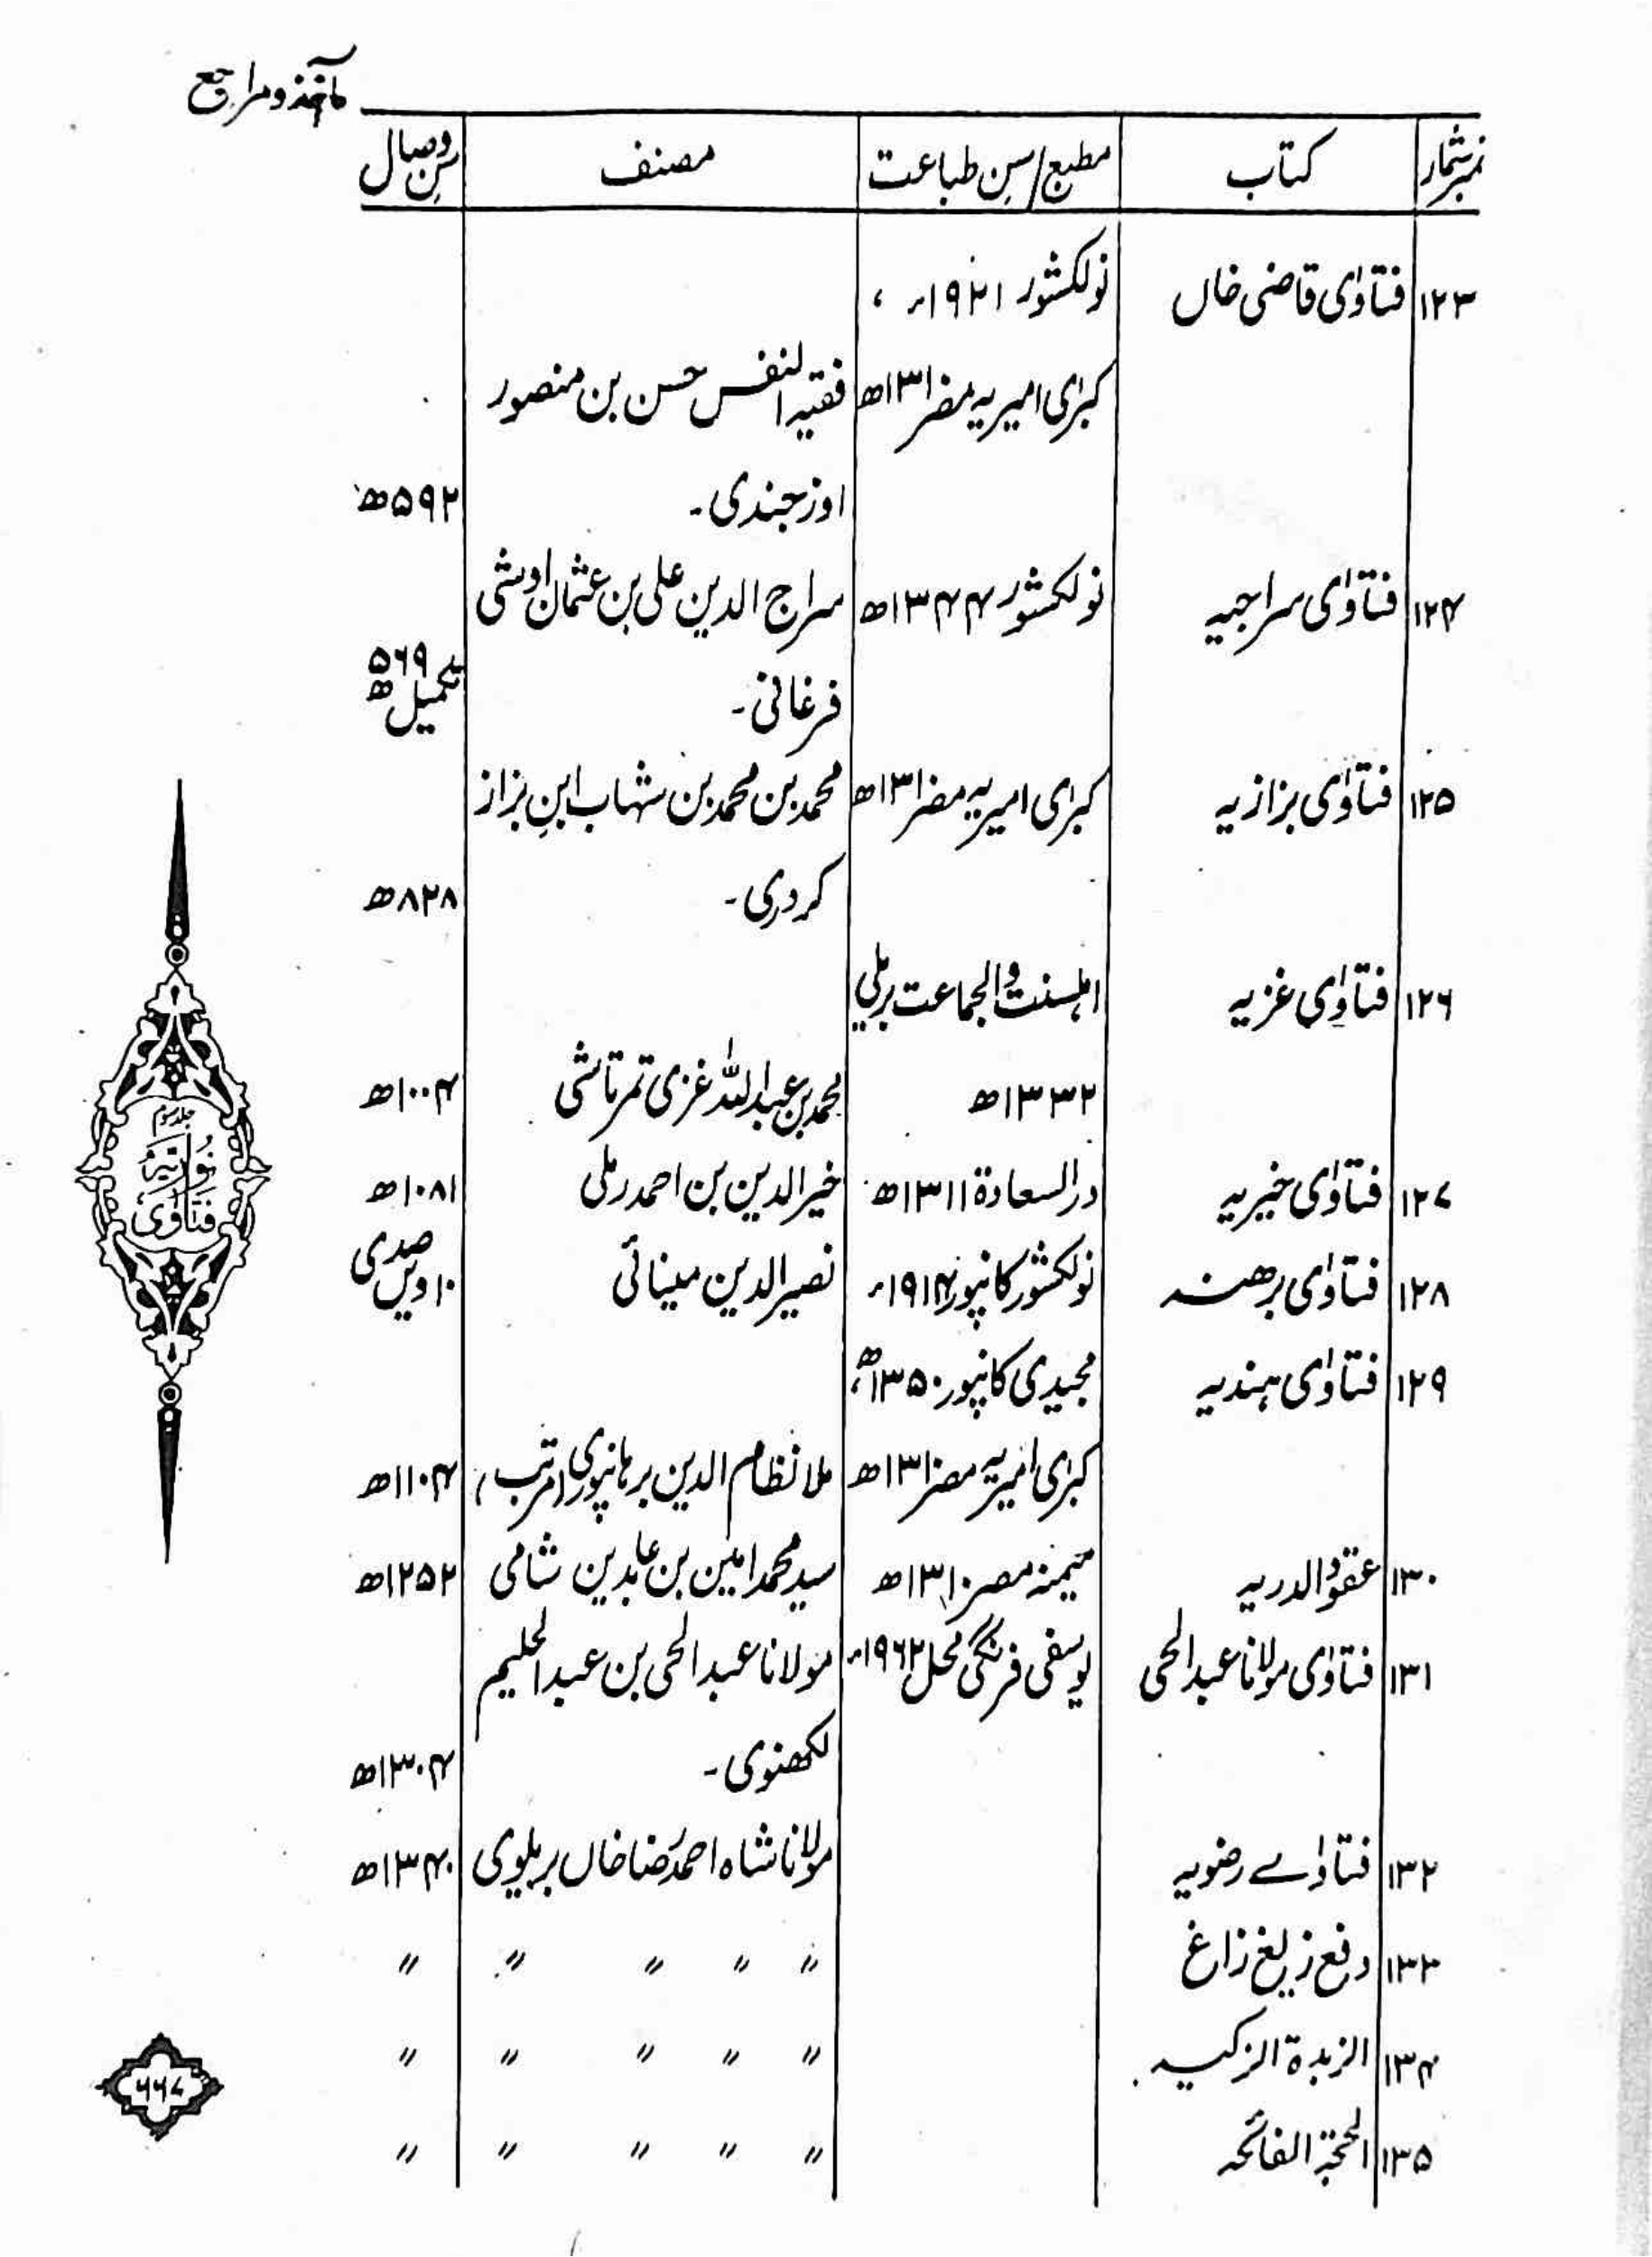 مآخذ و مراجع
نمبر شمار کتاب مطبع/سنِ طباعت مصنف سنِ وصال
۱۲۳ فتاوٰی قاضی خاں نولکشور ۱۹۲۱ء ،
کبرٰی امیریہ مصر ۱۳۱۰ھ فقیہ النفس حسن بن منصور
اوزجندی۔ ۵۹۲ھ
۱۲۴ فتاوٰی سراجیہ نولکشور ۱۳۴۴ھ سراج الدین علی بن عثمان اوشی
فرغانی۔ تکمیل ۵۶۹ھ
۱۲۵ فتاوٰی بزازیہ کبرٰی امیریہ مصر ۱۳۱۰ھ محمد بن محمد بن شہاب ابنِ بزاز
کردری۔ ۸۲۸ھ
۱۲۶ فتاوٰی غزیہ اہلسنت والجماعت بریلی
۱۳۳۲ھ محمد بن عبداللہ غزی تمرتاشی ۱۰۰۴ھ
۱۲۷ فتاوٰی خیریہ درالسعادۃ ۱۳۱۱ھ خیرالدین بن احمد رملی ۱۰۸۱ھ
۱۲۸ فتاوٰی برھنہ نولکشور کانپور ۱۹۱۴ء نصیرالدین مینائی ۱۰ویں صدی
۱۲۹ فتاوٰی ہندیہ مجیدی کانپور ۱۳۵۰ھ،
کبرٰی امیریہ مصر ۱۳۱۰ھ ملا نظام الدین برہانپوری (مرتب) ۱۱۰۴ھ
۱۳۰ عقود الدریہ میمنہ مصر ۱۳۱۰ھ سید محمد امین بن عابدین شامی ۱۲۵۲ھ
۱۳۱ فتاوٰی مولانا عبدالحی یوسفی فرنگی محل ۱۹۶۲ء مولانا عبدالحی بن عبدالحلیم
لکھنوی۔ ۱۳۰۴ھ
۱۳۲ فتاوٰے رضویہ مولانا شاہ احمد رضا خاں بریلوی ۱۳۴۰ھ
۱۳۳ دفع زیغ زاغ 〃 〃 〃 〃 〃
۱۳۴ الزبدۃ الزکیہ 〃 〃 〃 〃 〃
۱۳۵ الحجۃ الفائحہ 〃 〃 〃 〃 〃
جلد سوم
فتاوٰی نوریہ
۶۶۷